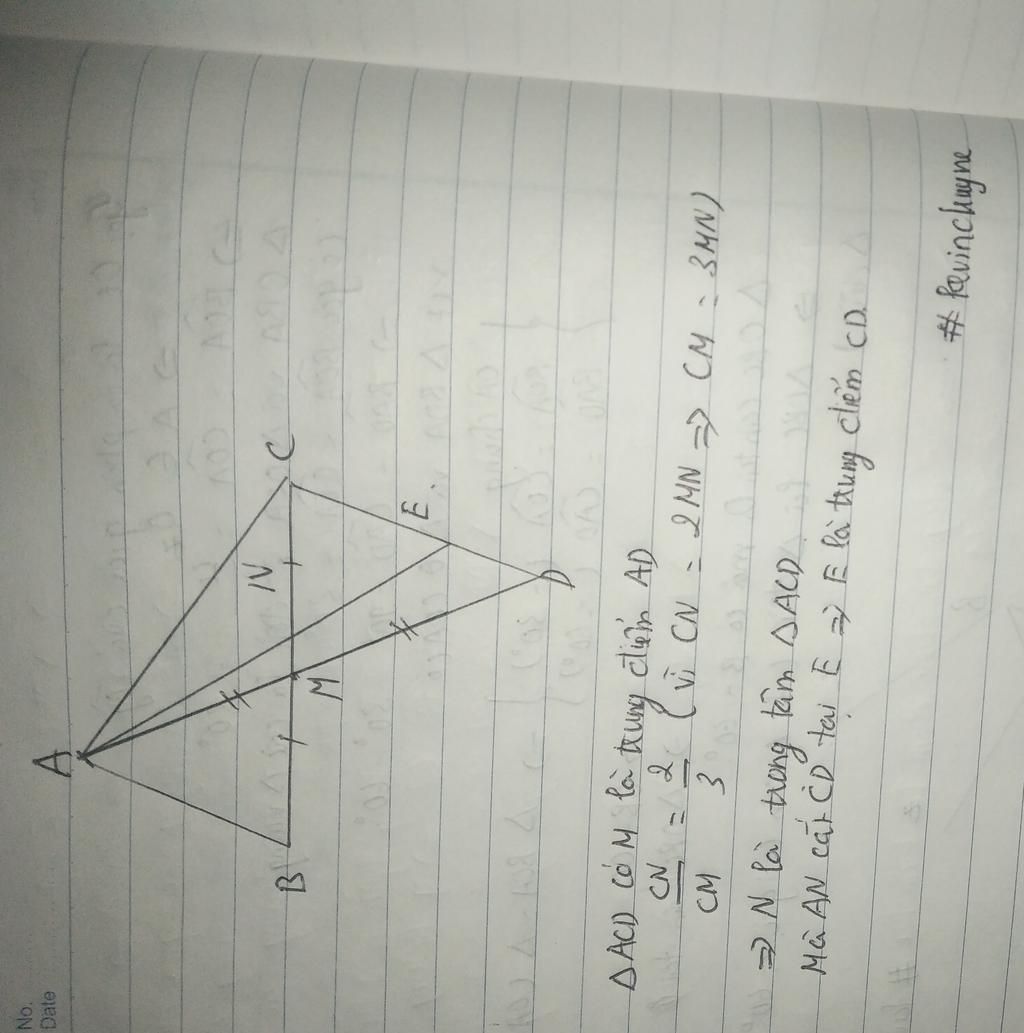 No.
Date
A
B
M
N
C
E
D
ΔACD có M là trung điểm AD
CN/CM = 2/3 (vì CN = 2MN => CM = 3MN)
=> N là trong tâm ΔACD
Mà AN cắt CD tại E => E là trung điểm CD.
# kevinchuyne